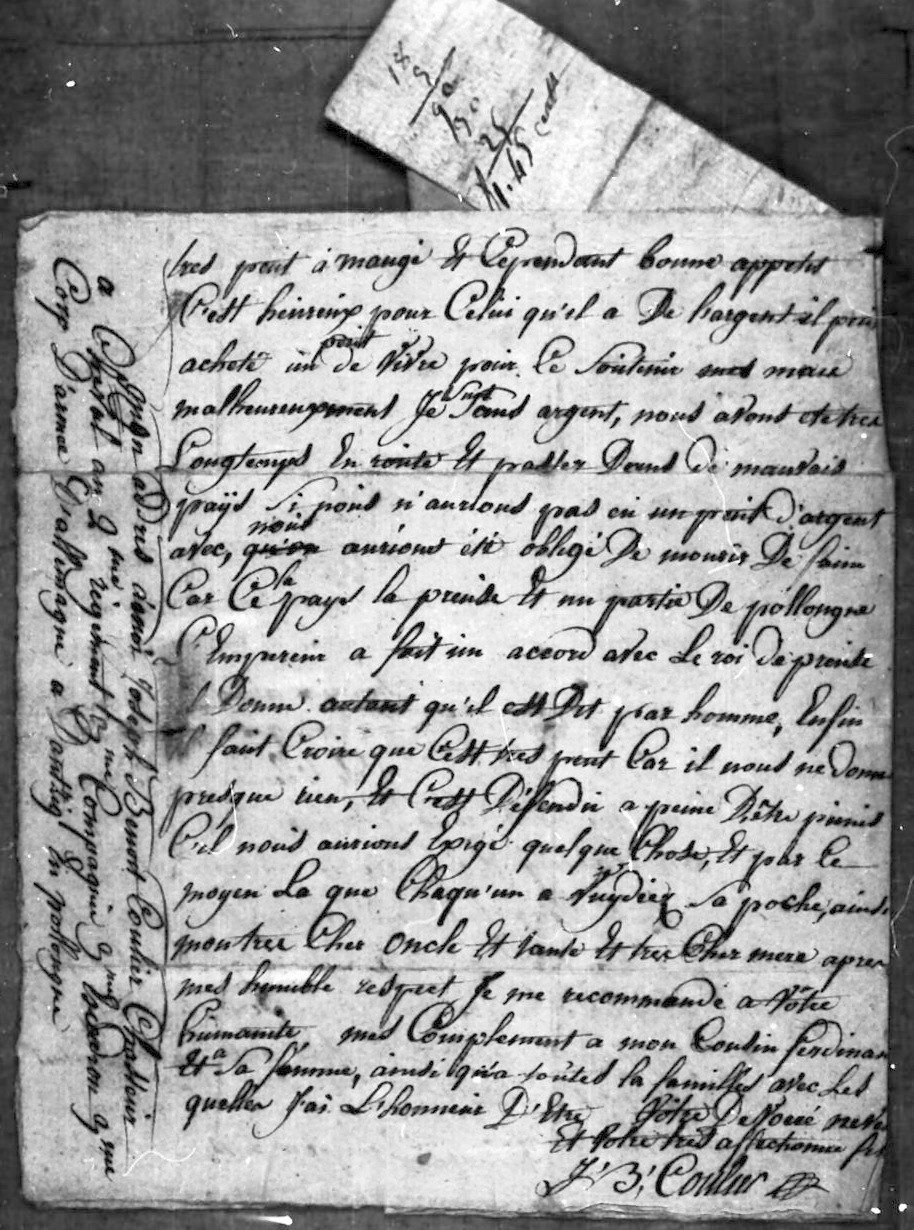 18
9
90
150
25
11.45 cent
tres peut à mangé Et Cependant bonne appetit
C'est heureux pour Celui qu'il a De l'argent il peut
acheté un peut de Vivre pour le Soutenir mes mais
malheureuxement Je Suis Sans argent, nous avons ete tres
Longtemps En route Et passer Dans de mauvais
pays Si nous n'aurions pas eu un peut d'argent
avec, qu'on nous aurions été obligé De mourir De faim
Car Ce la pays la preusse Et un partie De pollongne
L'Empereur a fait un accord avec Le roi de preusse
il Donne autant qu'il est Dit par homme, Enfin
il faut Croire que C'est tres peut Car il nous ne donne
presque rien, Et C'est Défendu a peine D'être punis
C'il nous aurions Exigé quelque Chose, Et par ce
moyen La que Chaqu'un a Vuydiez Sa poche, ainsi
mon tres Cher oncle Et tante Et tres Cher mere apres
mes humble respect Je me recommande a Vôtre
humanite, mes Complement a mon Cousin ferdinan
Et a Sa femme, ainsi qu'a toûtes la familles avec Les
quelles J'ai L'honneur D'Etre Vôtre Devoué neve
Et Votre tres affectionné fis
J: B: Coulier
mon adres denvoi Joseph Benoit Coulier Chasseur
a Cheval au 2 me regiment 7 me Compagnie 3 me Escadron 9 me
Corp D'armée D'allemagne a Dantzig En pollongne